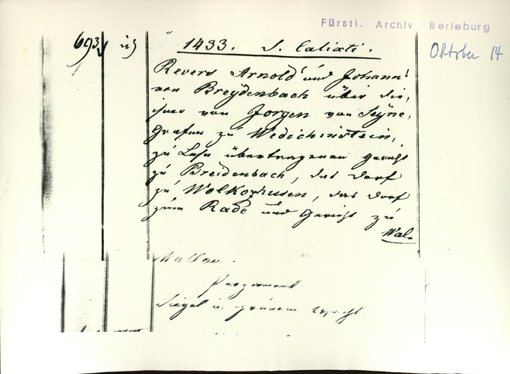 Fürstl. Archiv Berleburg
693
1433. S. Calixti.
Oktober 14
Revers Arnold und Johann
von Breydenbach über die
ihnen von Jorgen von Seyne,
Grafen zu Wedichinstein,
zu Lehn übertragenen Gericht
zu Breidenbach, das Dorf
zu Wolkozhusen, das Dorf
zum Rade und Gericht zu
Wal-
Pergament
Siegel in grünem